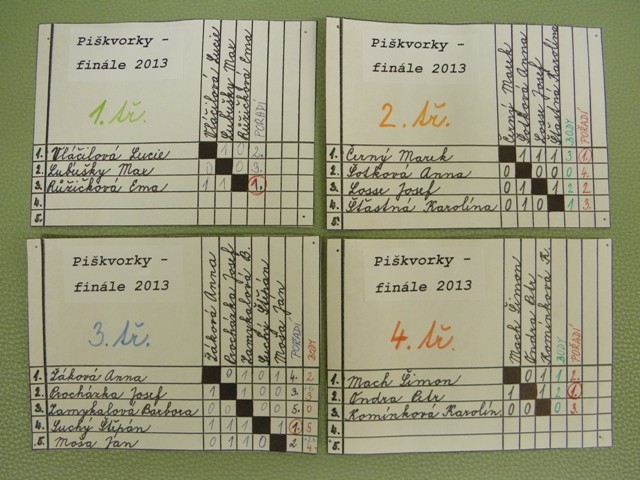 Piškvorky -
finále 2013
1. tř.
Vláčilová Lucie
Lubušky Max
Růžičková Ema
POŘADÍ
1. Vláčilová Lucie 1 0 2.
2. Lubušky Max 0 0 3.
3. Růžičková Ema 1 1 1.
4.
5.
Piškvorky -
finále 2013
2. tř.
Černý Marek
Šotková Anna
Losse Josef
Šťastná Karolína
BODY
POŘADÍ
1. Černý Marek 1 1 1 3 1.
2. Šotková Anna 0 0 0 0 4.
3. Losse Josef 0 1 1 2 2.
4. Šťastná Karolína 0 1 0 1 3.
5.
Piškvorky -
finále 2013
3. tř.
Žáková Anna
Procházka Josef
Zamykalová B.
Suchý Štěpán
Moša Ján
POŘADÍ
BODY
1. Žáková Anna 0 1 0 1 4. 2
2. Procházka Josef 1 1 0 0 3.
3. Zamykalová Barbora 0 0 0 0 5. 0
4. Suchý Štěpán 1 1 1 1 1. 5
5. Moša Ján 0 1 1 0 2.
Piškvorky -
finále 2013
4. tř.
Mach Šimon
Ondra Petr
Komínková K.
BODY
POŘADÍ
1. Mach Šimon 0 1 1 2.
2. Ondra Petr 1 1 2 1.
3. Komínková Karolín. 0 0 0 3.
4.
5.